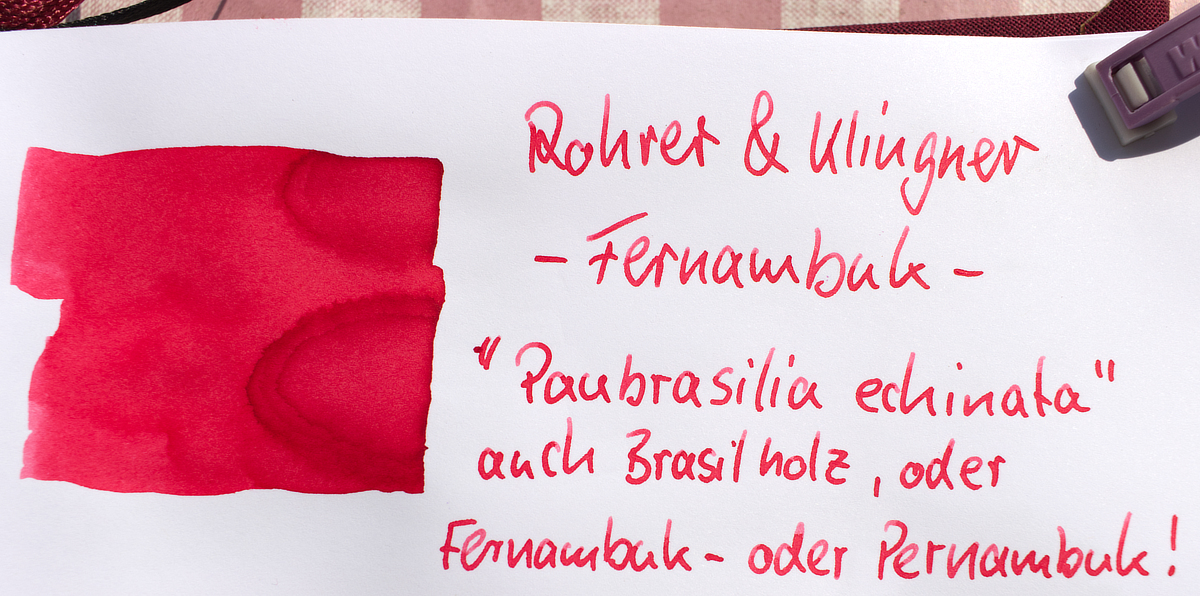 Rohrer & Klingner
- Fernambuk -
"Paubrasilia echinata"
auch Brasilholz, oder
Fernambuk- oder Pernambuk!